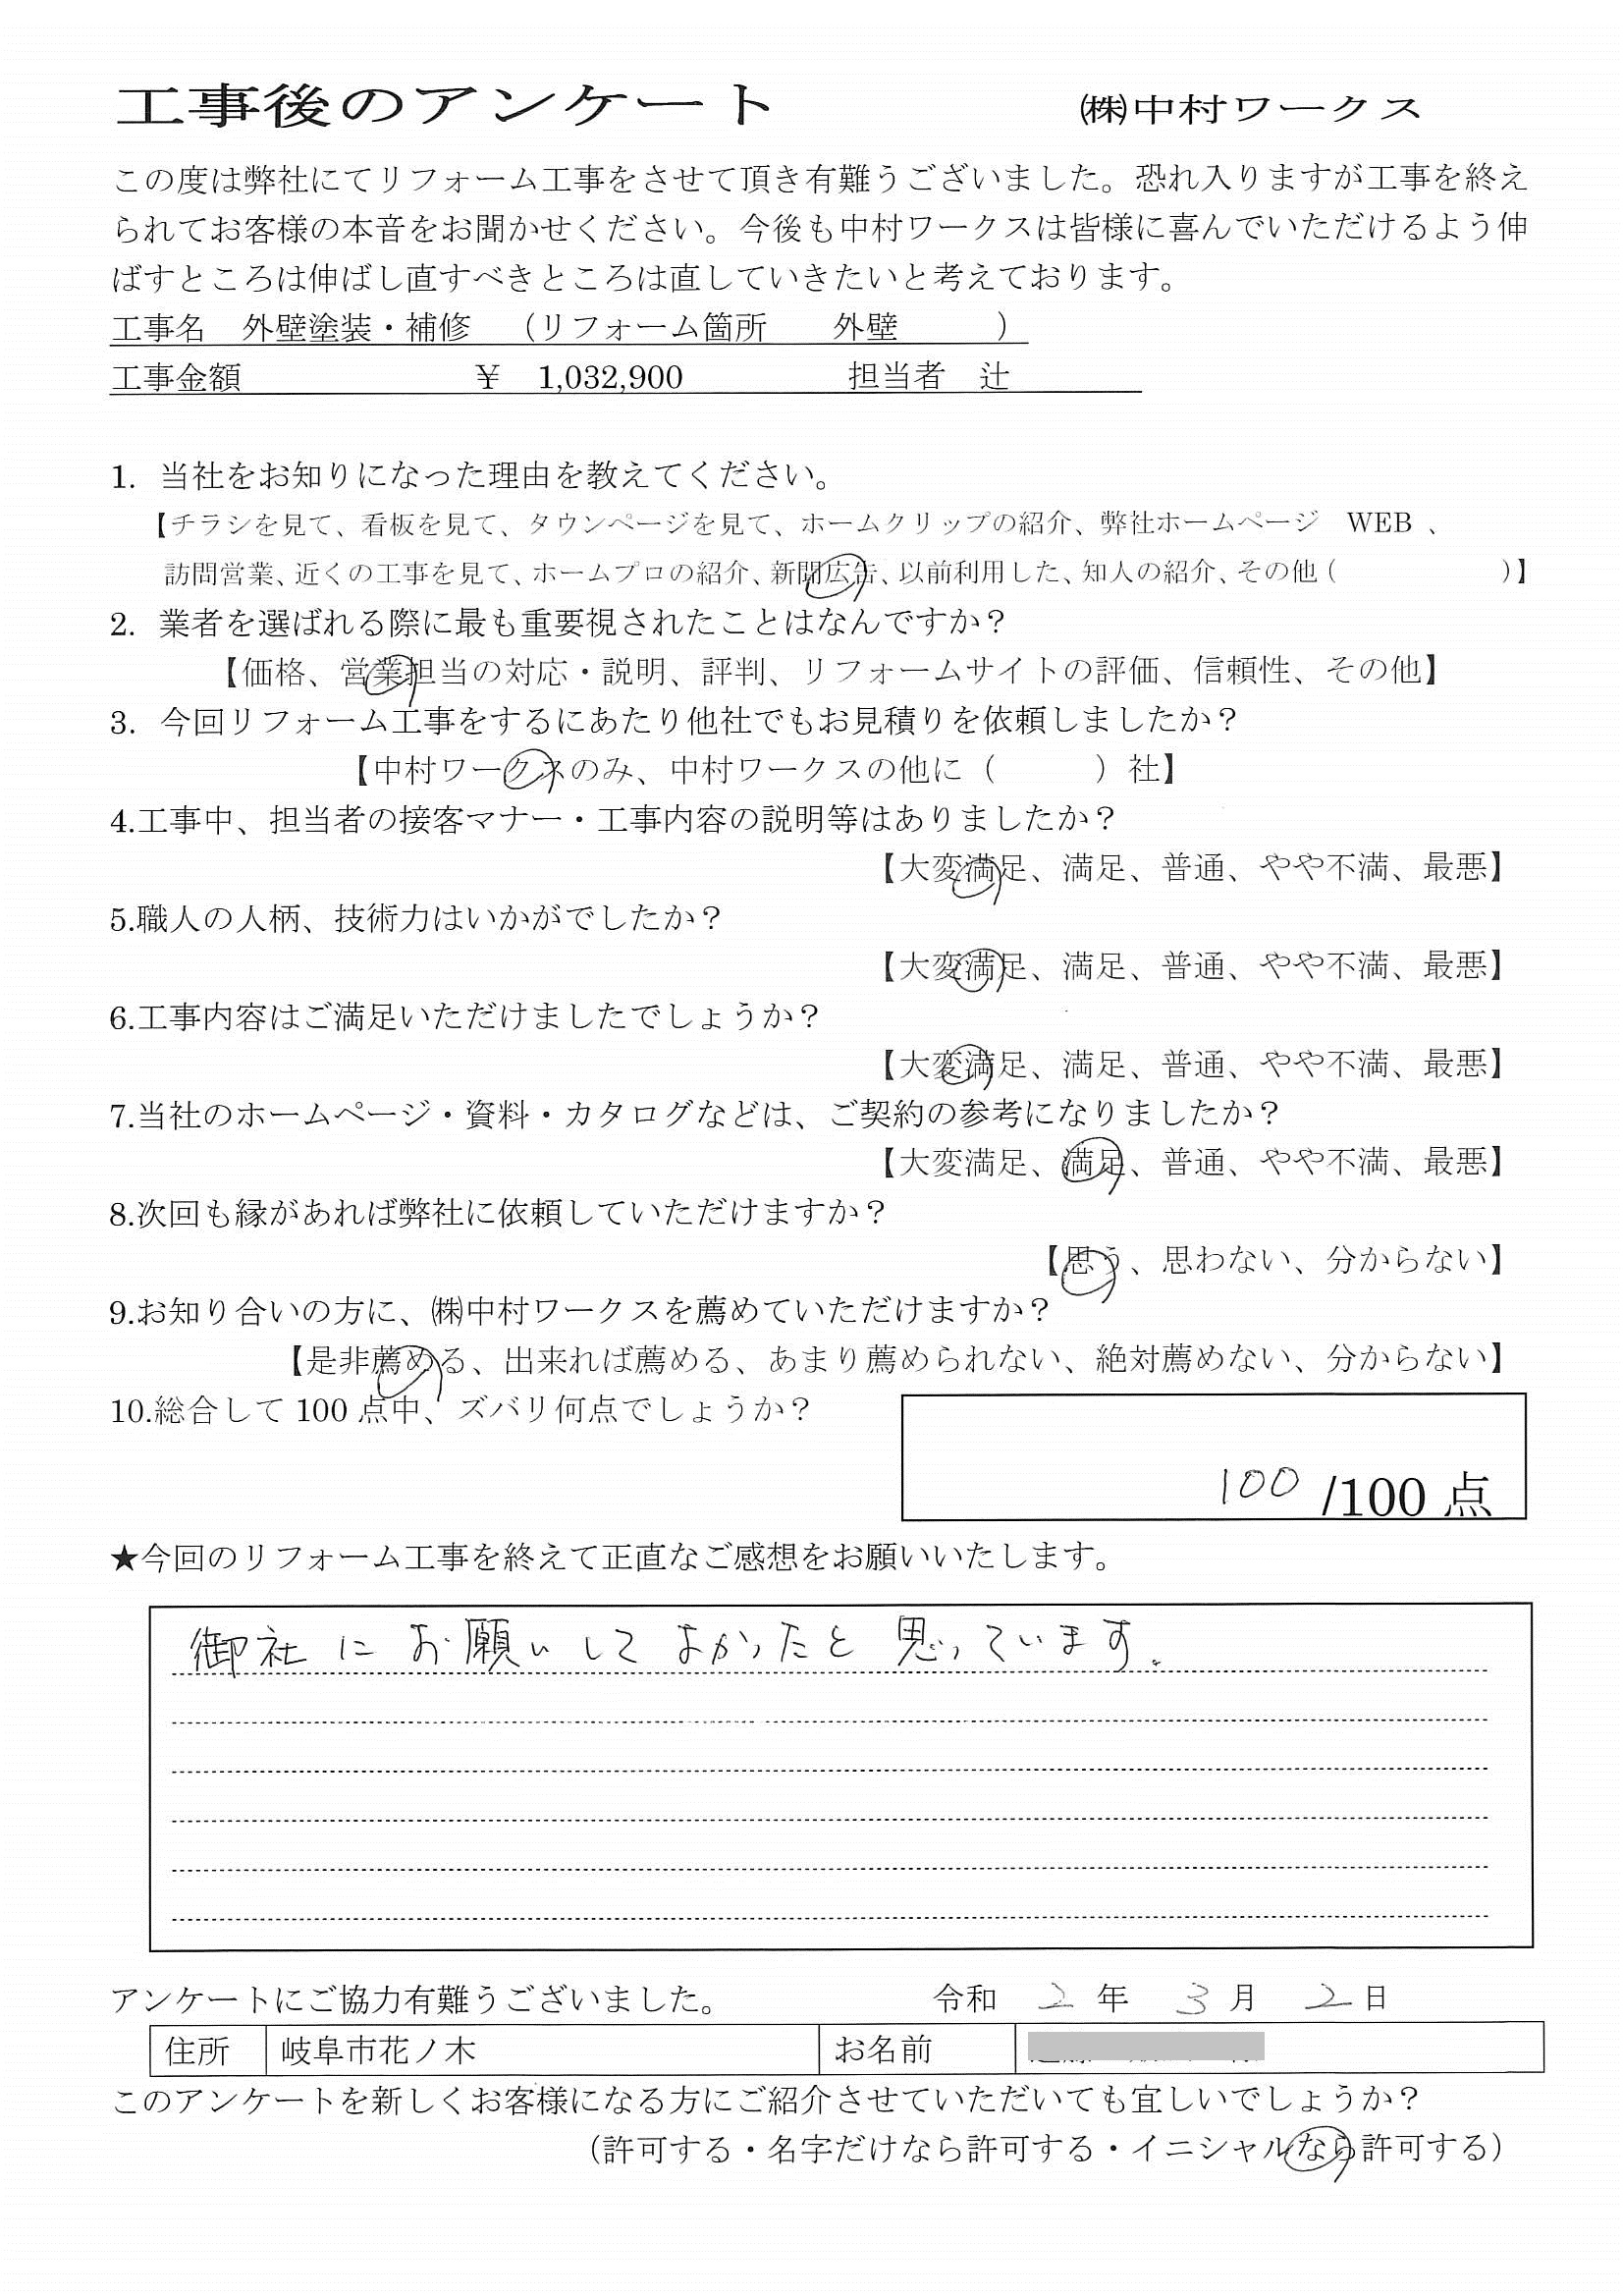 工事後のアンケート ㈱中村ワークス
この度は弊社にてリフォーム工事をさせて頂き有難うございました。恐れ入りますが工事を終え
られてお客様の本音をお聞かせください。今後も中村ワークスは皆様に喜んでいただけるよう伸
ばすところは伸ばし直すべきところは直していきたいと考えております。
工事名 外壁塗装・補修 （リフォーム箇所 外壁 ）
工事金額 ￥ 1,032,900 担当者 辻
1. 当社をお知りになった理由を教えてください。
【チラシを見て、看板を見て、タウンページを見て、ホームクリップの紹介、弊社ホームページ WEB 、
訪問営業、近くの工事を見て、ホームプロの紹介、新聞広告、以前利用した、知人の紹介、その他（ ）】
2. 業者を選ばれる際に最も重要視されたことはなんですか？
【価格、営業担当の対応・説明、評判、リフォームサイトの評価、信頼性、その他】
3. 今回リフォーム工事をするにあたり他社でもお見積りを依頼しましたか？
【中村ワークスのみ、中村ワークスの他に（ ）社】
4.工事中、担当者の接客マナー・工事内容の説明等はありましたか？
【大変満足、満足、普通、やや不満、最悪】
5.職人の人柄、技術力はいかがでしたか？
【大変満足、満足、普通、やや不満、最悪】
6.工事内容はご満足いただけましたでしょうか？
【大変満足、満足、普通、やや不満、最悪】
7.当社のホームページ・資料・カタログなどは、ご契約の参考になりましたか？
【大変満足、満足、普通、やや不満、最悪】
8.次回も縁があれば弊社に依頼していただけますか？
【思う、思わない、分からない】
9.お知り合いの方に、㈱中村ワークスを薦めていただけますか？
【是非薦める、出来れば薦める、あまり薦められない、絶対薦めない、分からない】
10.総合して 100 点中、ズバリ何点でしょうか？
100 /100 点
★今回のリフォーム工事を終えて正直なご感想をお願いいたします。
御社にお願いしてよかったと思っています。
アンケートにご協力有難うございました。 令和 2 年 3 月 2 日
住所 岐阜市花ノ木 お名前
このアンケートを新しくお客様になる方にご紹介させていただいても宜しいでしょうか？
（許可する・名字だけなら許可する・イニシャルなら許可する）